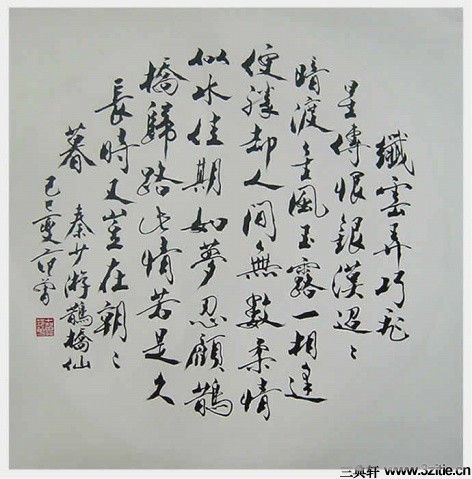 纖雲弄巧飛
星傳恨銀漢迢〻
暗渡金風玉露一相逢
便勝却人間無數柔情
似水佳期如夢忍顧鵲
橋歸路此情若是久
長時又豈在朝〻
暮
秦少游鵲橋仙
己巳夏范曾
三典轩 www.3zitie.cn